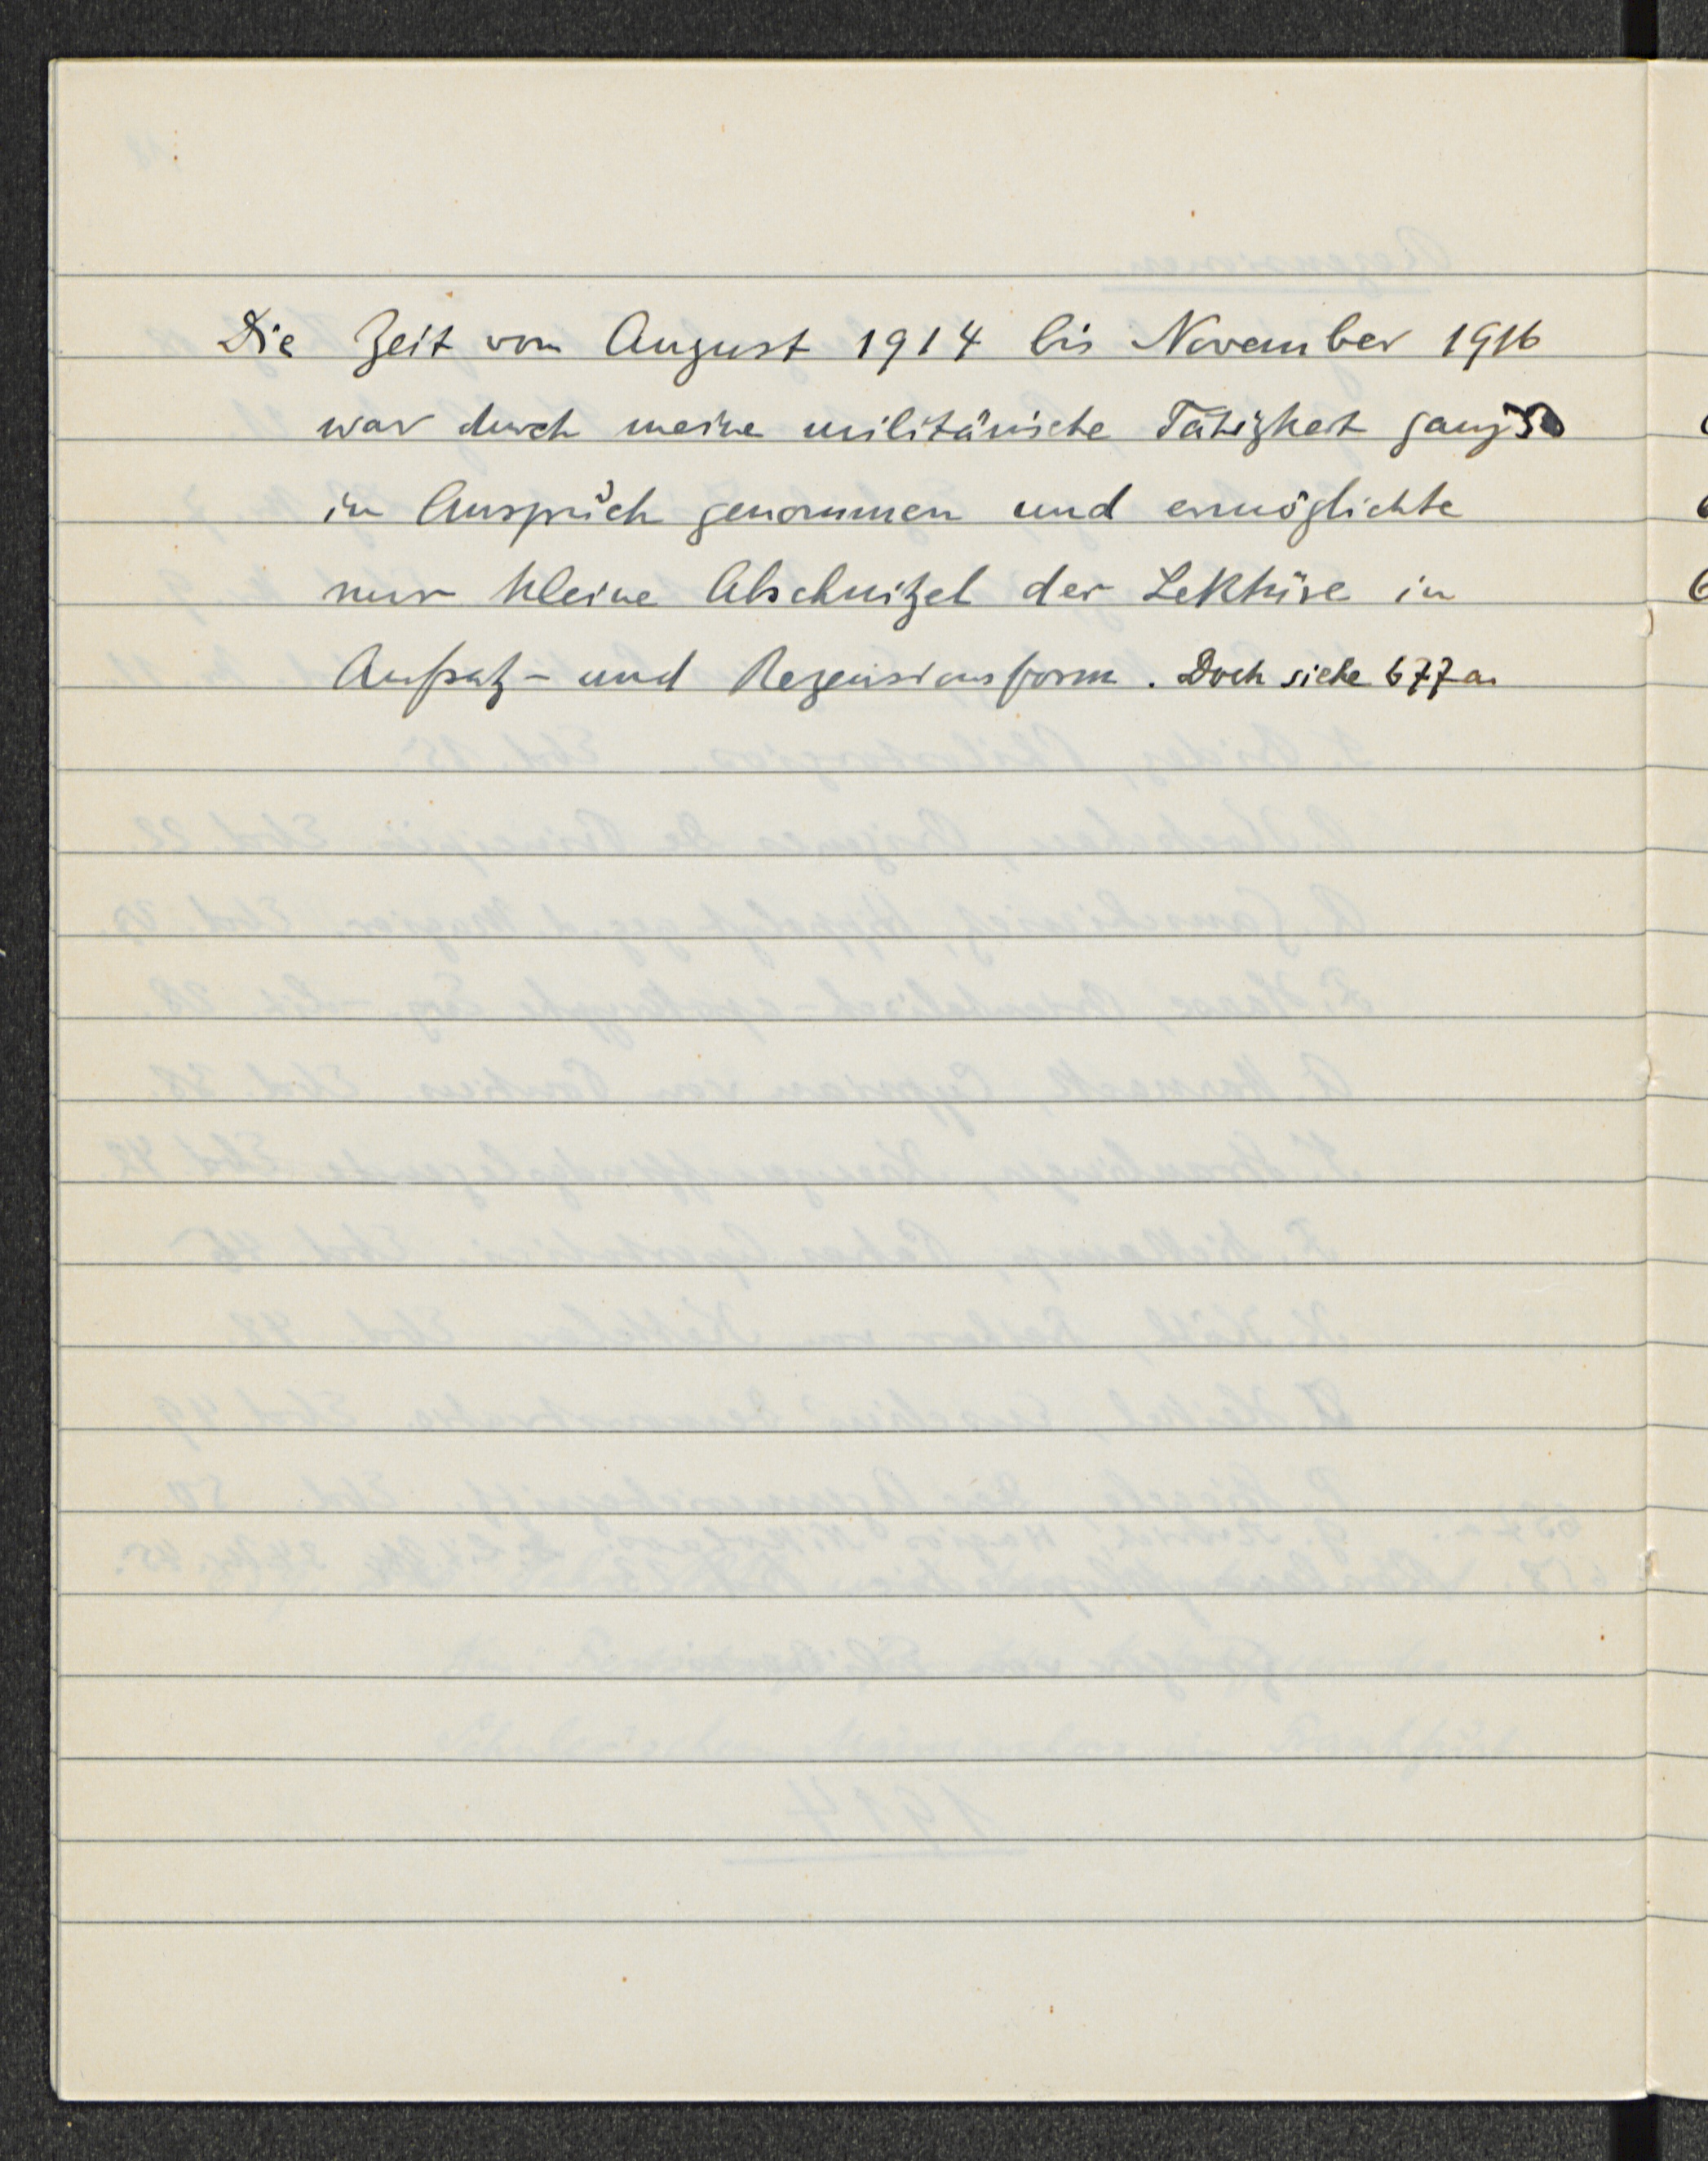 Die Zeit von August 1914 bis November 1916
war durch meine militärische Tätigkeit ganz
in Anspruch genommen und ermöglichte
nur kleine Abschnitzel der Lektüre in
Aufsatz- und Rezensionsform. Doch siehe 677a